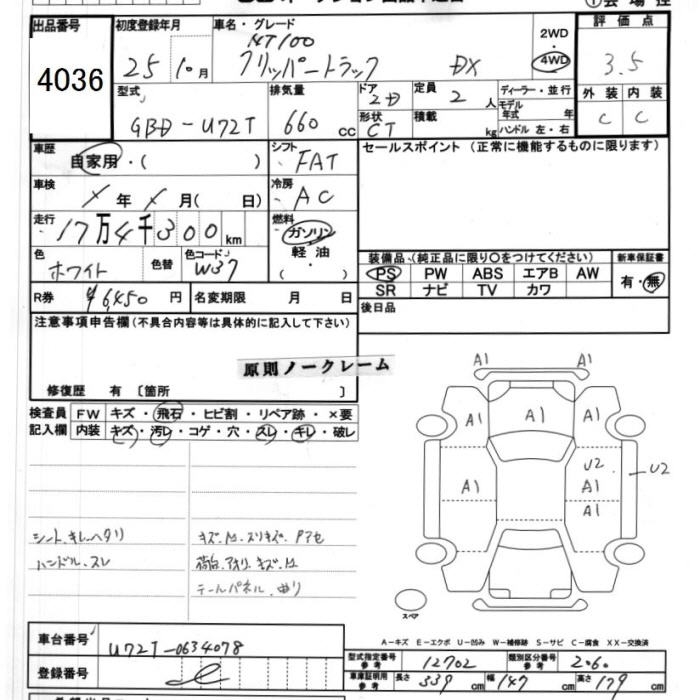 出品番号 4036
初度登録年月 25 10月
車名・グレード NT100 クリッパートラック DX
2WD 4WD
評価点 3.5
外装 内装
C C
型式 GBD-U72T
排気量 660 cc
ドア 2D
形状 CT
定員 2人
積載 kg
ディーラー・並行
モデル年式 年
ハンドル 左・右
車歴 自家用・( )
シフト FAT
車検 年 月( 日)
冷房 AC
走行 17万4千300km
燃料 ガソリン・軽油・( )
色 ホワイト 色替 色コード W37
R券 ¥6450円 名変期限 月 日
セールスポイント(正常に機能するものに限ります)
装備品(純正品に限り○をつけてください) 新車保証書
PS PW ABS エアB AW 有・無
SR ナビ TV カワ
後日品
注意事項申告欄(不具合内容等は具体的に記入して下さい)
原則ノークレーム
修復歴 有 〔箇所 〕
検査員記入欄
FW キズ・飛石・ヒビ割・リペア跡・×要
内装 キズ・汚レ・コゲ・穴・スレ・キレ・破レ
シート、キレ、ヘタリ
ハンドル、スレ
荷台、アオリ、キズ、凹
テールパネル、曲り
A1 A1
A1 A1 A1
U2 U2
A1 A1
A1
スペア
A-キズ E-エクボ U-凹み W-補修跡 S-サビ C-腐食 XX-交換済
車台番号 U72T-0634078
登録番号
型式指定番号 参考 12702 類別区分番号 参考 206
車庫証明用 参考 長さ 339cm 幅 147cm 高さ 179cm